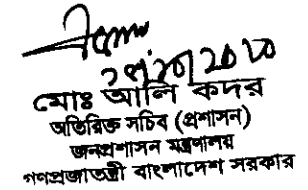 মোঃ আলি কদর
অতিরিক্ত সচিব (প্রশাসন)
জনপ্রশাসন মন্ত্রণালয়
গণপ্রজাতন্ত্রী বাংলাদেশ সরকার